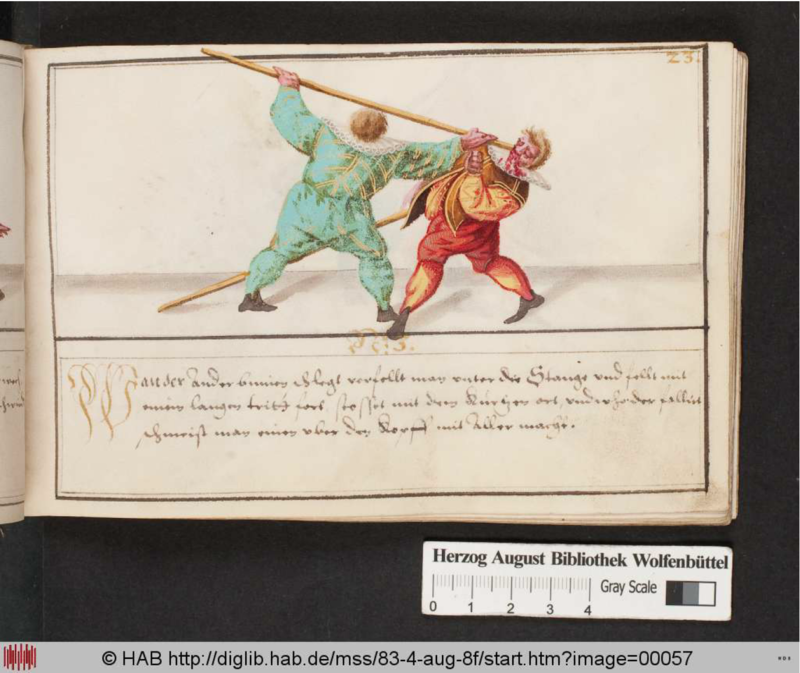 23.
N: 3.
Wan der Ander binnen schlegt verfellt man unter die Stange und fellt mit
einem langen tritt fort, stosset mit dem Kurtzen ort, und
schmeist man einen uber den Kopff mit Aller macht.
Herzog August Bibliothek Wolfenbüttel
Gray Scale
0 1 2 3 4
© HAB http://diglib.hab.de/mss/83-4-aug-8f/start.htm?image=00057